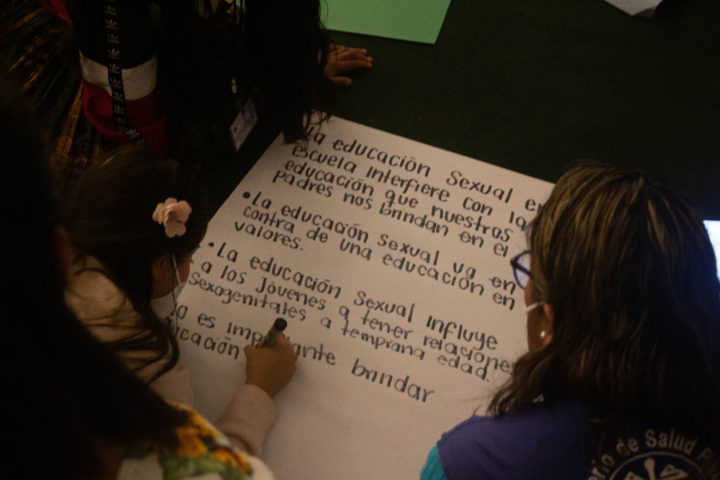 La educación Sexual en
escuela Interfiere con la
educación que nuestros
padres nos brindan en el
•La educación Sexual va en
contra de una educación en
valores.
•La educación Sexual Influye
a los Jóvenes a tener relaciones
sexogenitales a temprana edad.
no es brindar
de Salud